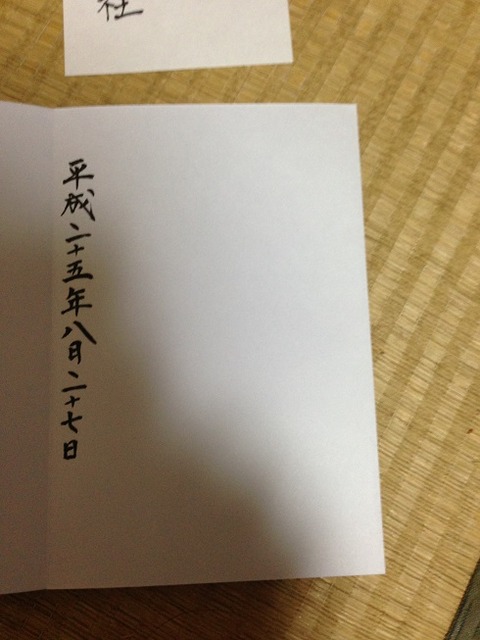 社
平成二十五年八月二十七日